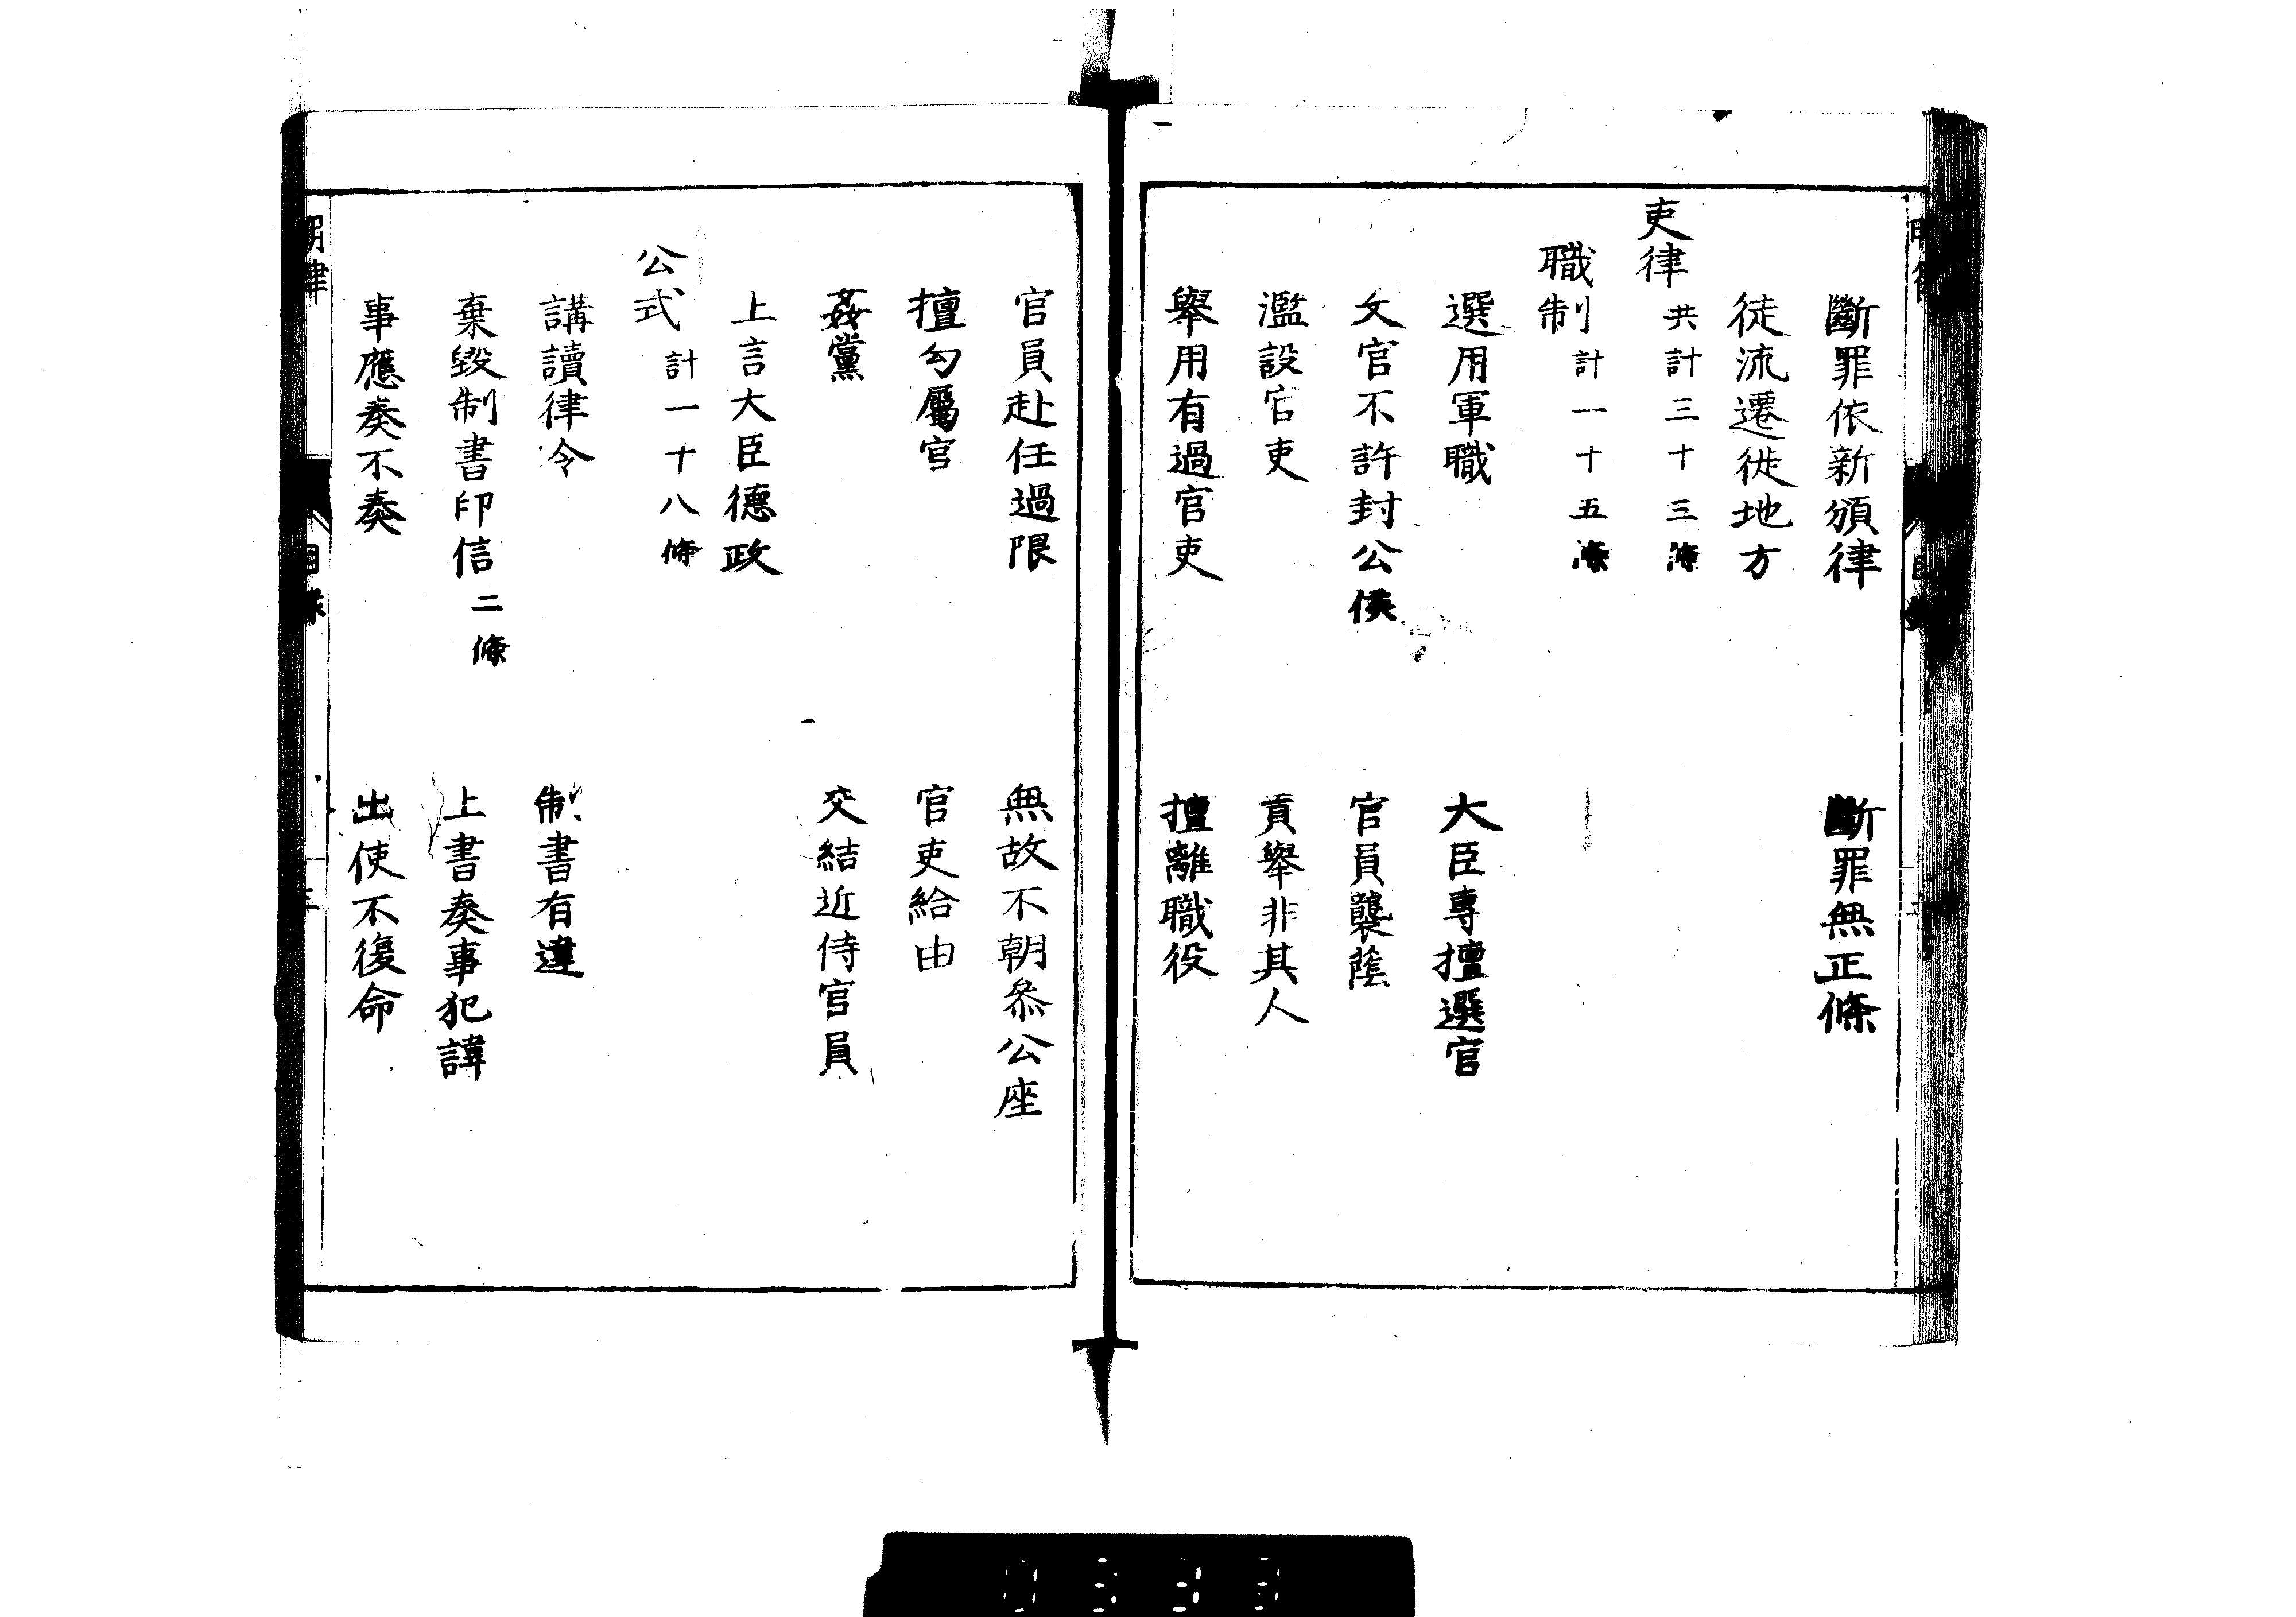 斷罪依新頒律　斷罪無正條
徒流遷徙地方
吏律 共計三十三條
職制 計一十五條
選用軍職　大臣專擅選官
文官不許封公侯　官員襲蔭
濫設官吏　貢舉非其人
舉用有過官吏　擅離職役
官員赴任過限　無故不朝叅公座
擅勾屬官　官吏給由
姦黨　交結近侍官員
上言大臣德政
公式 計一十八條
講讀律令　制書有違
棄毀制書印信 二條　上書奏事犯諱
事應奏不奏　出使不復命
明律　目錄